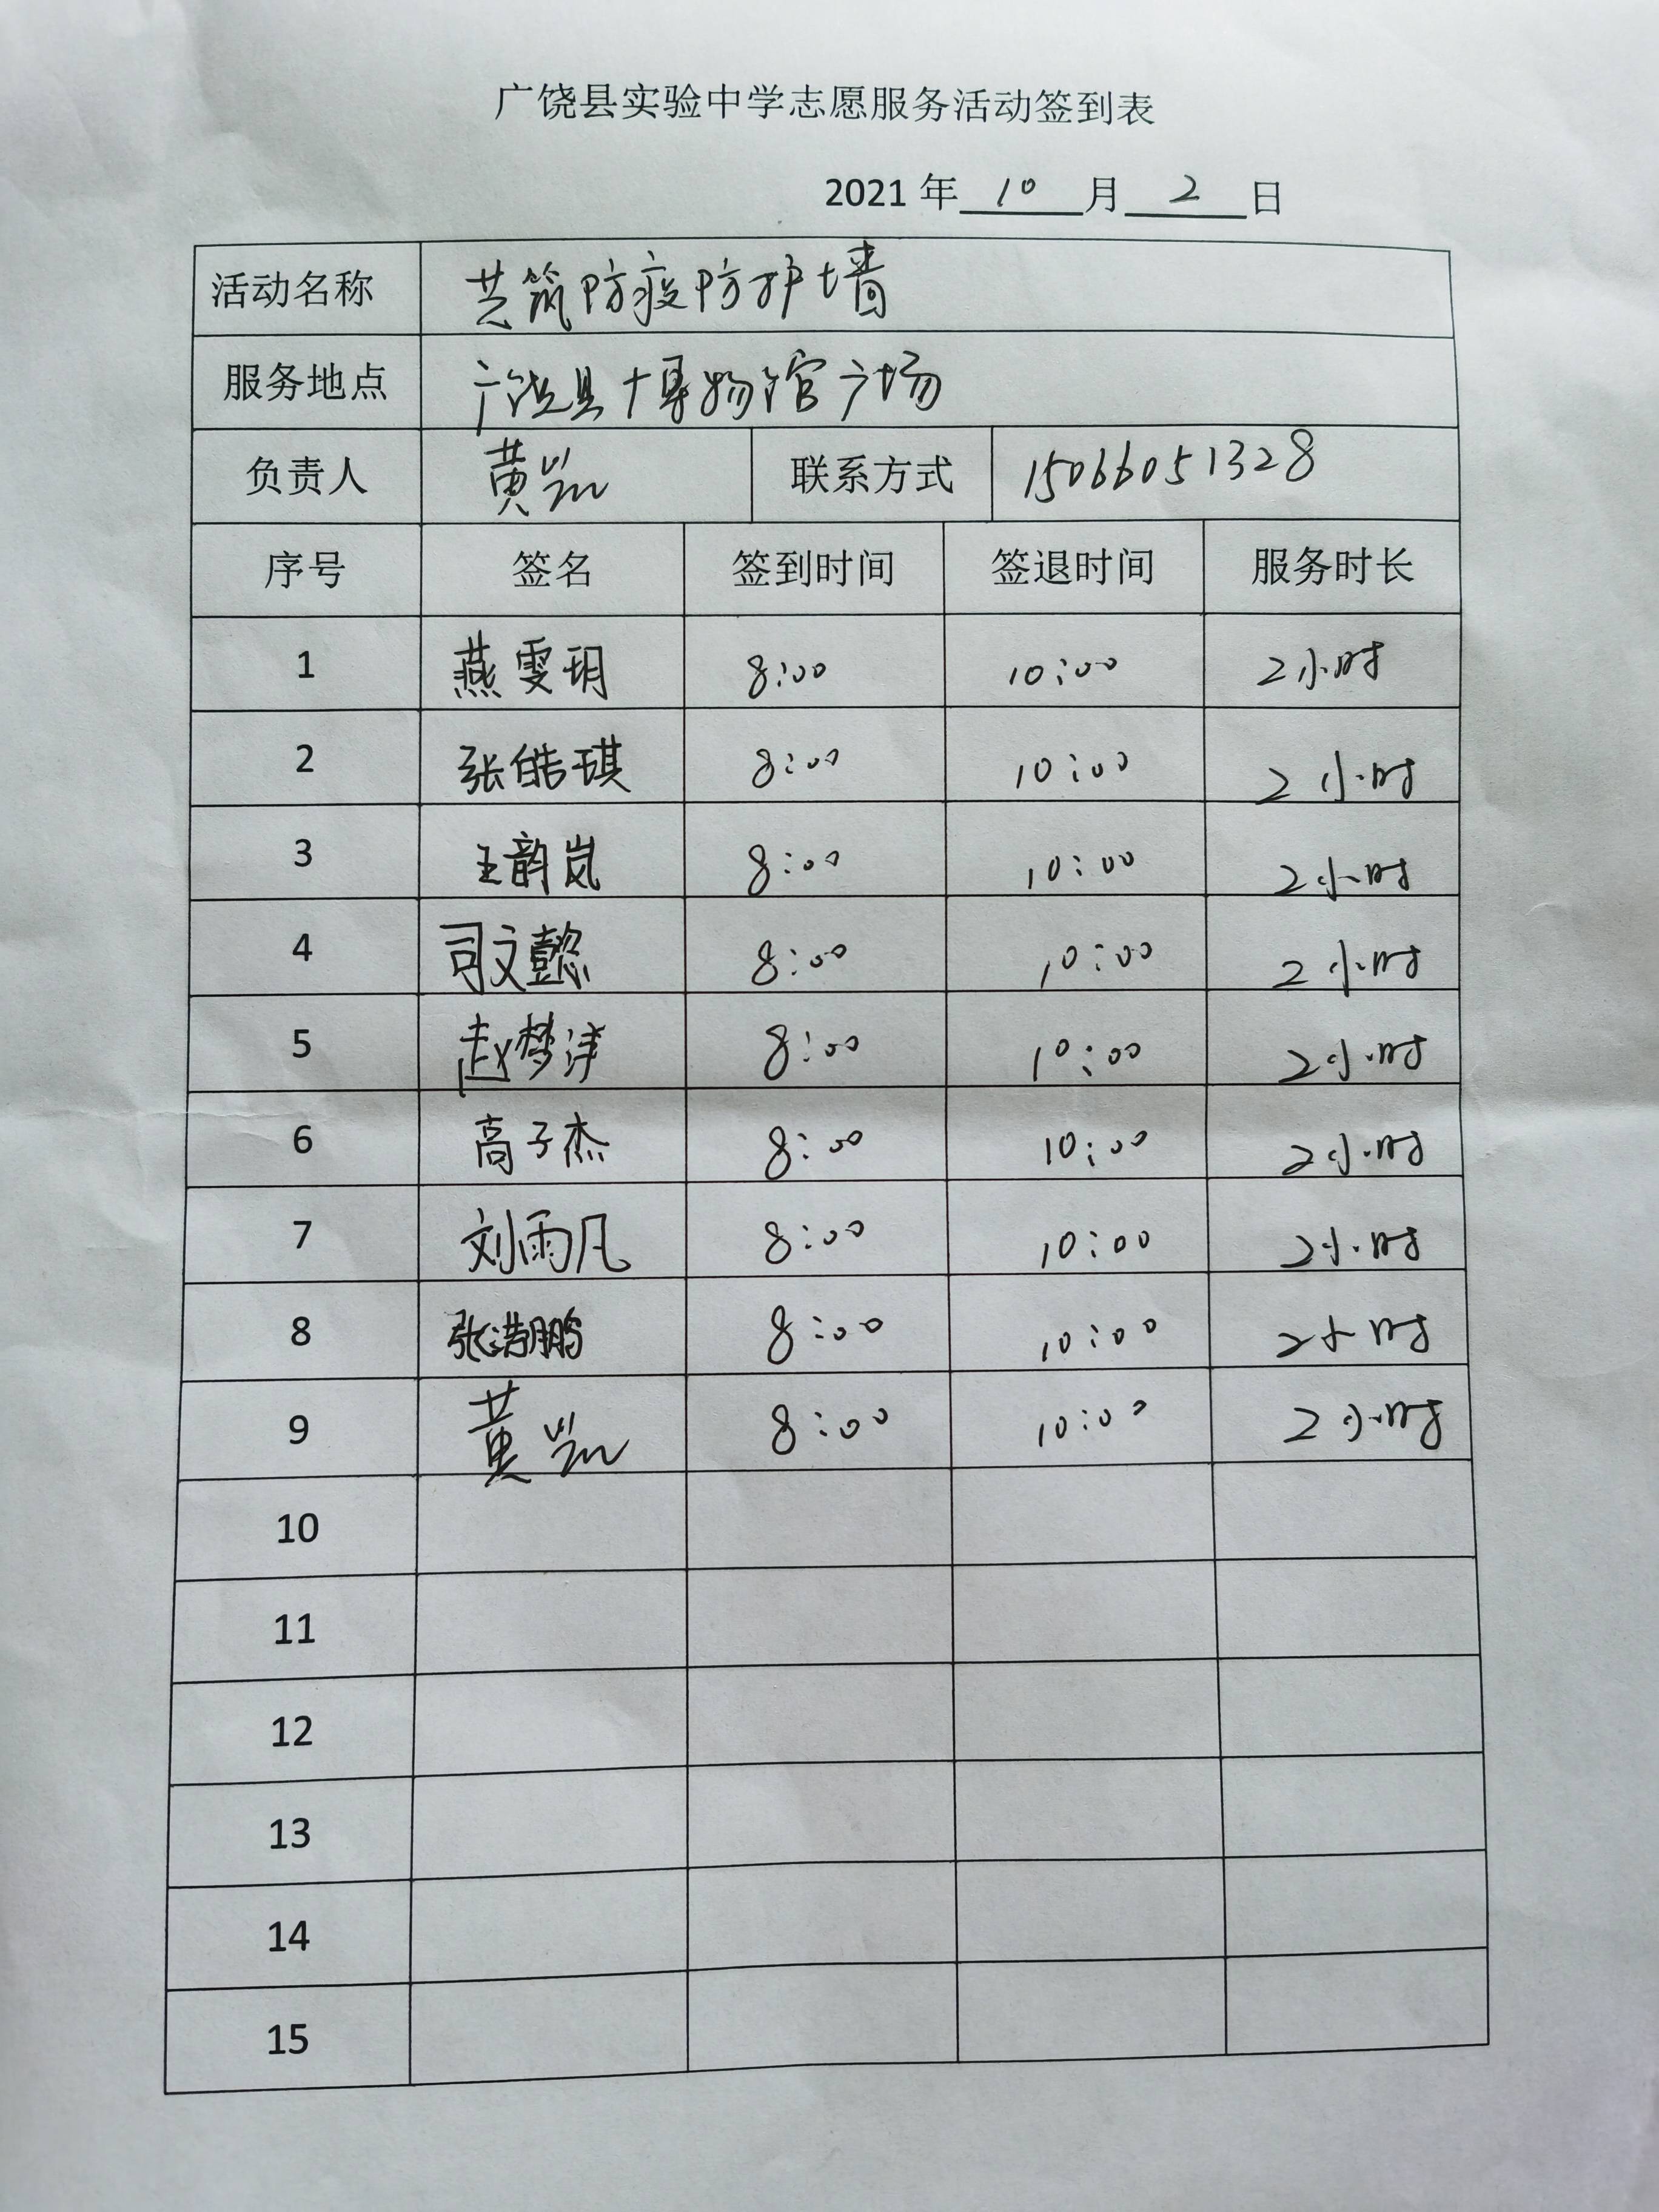 广饶县实验中学志愿服务活动签到表
2021 年 10 月 2 日
活动名称 共筑防疫防护墙
服务地点 广饶县博物馆广场
负责人 黄凯 联系方式 15066051328
序号 签名 签到时间 签退时间 服务时长
1 燕雯玥 8:00 10:00 2小时
2 张皓琪 8:00 10:00 2小时
3 王韵岚 8:00 10:00 2小时
4 司文懿 8:00 10:00 2小时
5 赵梦洋 8:00 10:00 2小时
6 高子杰 8:00 10:00 2小时
7 刘雨凡 8:00 10:00 2小时
8 张浩鹏 8:00 10:00 2小时
9 黄凯 8:00 10:00 2小时
10
11
12
13
14
15